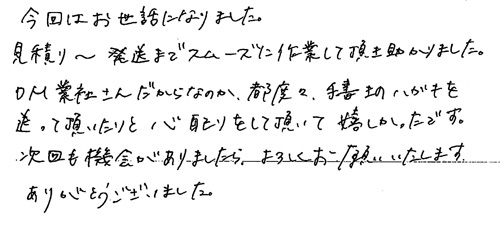 今回はお世話になりました。
見積り〜発送までスムーズに作業して頂き助かりました。
DM業社さんだからなのか、都度々、手書きのハガキを
送って頂いたりと心配りをして頂いて嬉しかったです。
次回も機会がありましたら、よろしくお願いいたします。
ありがとうございました。